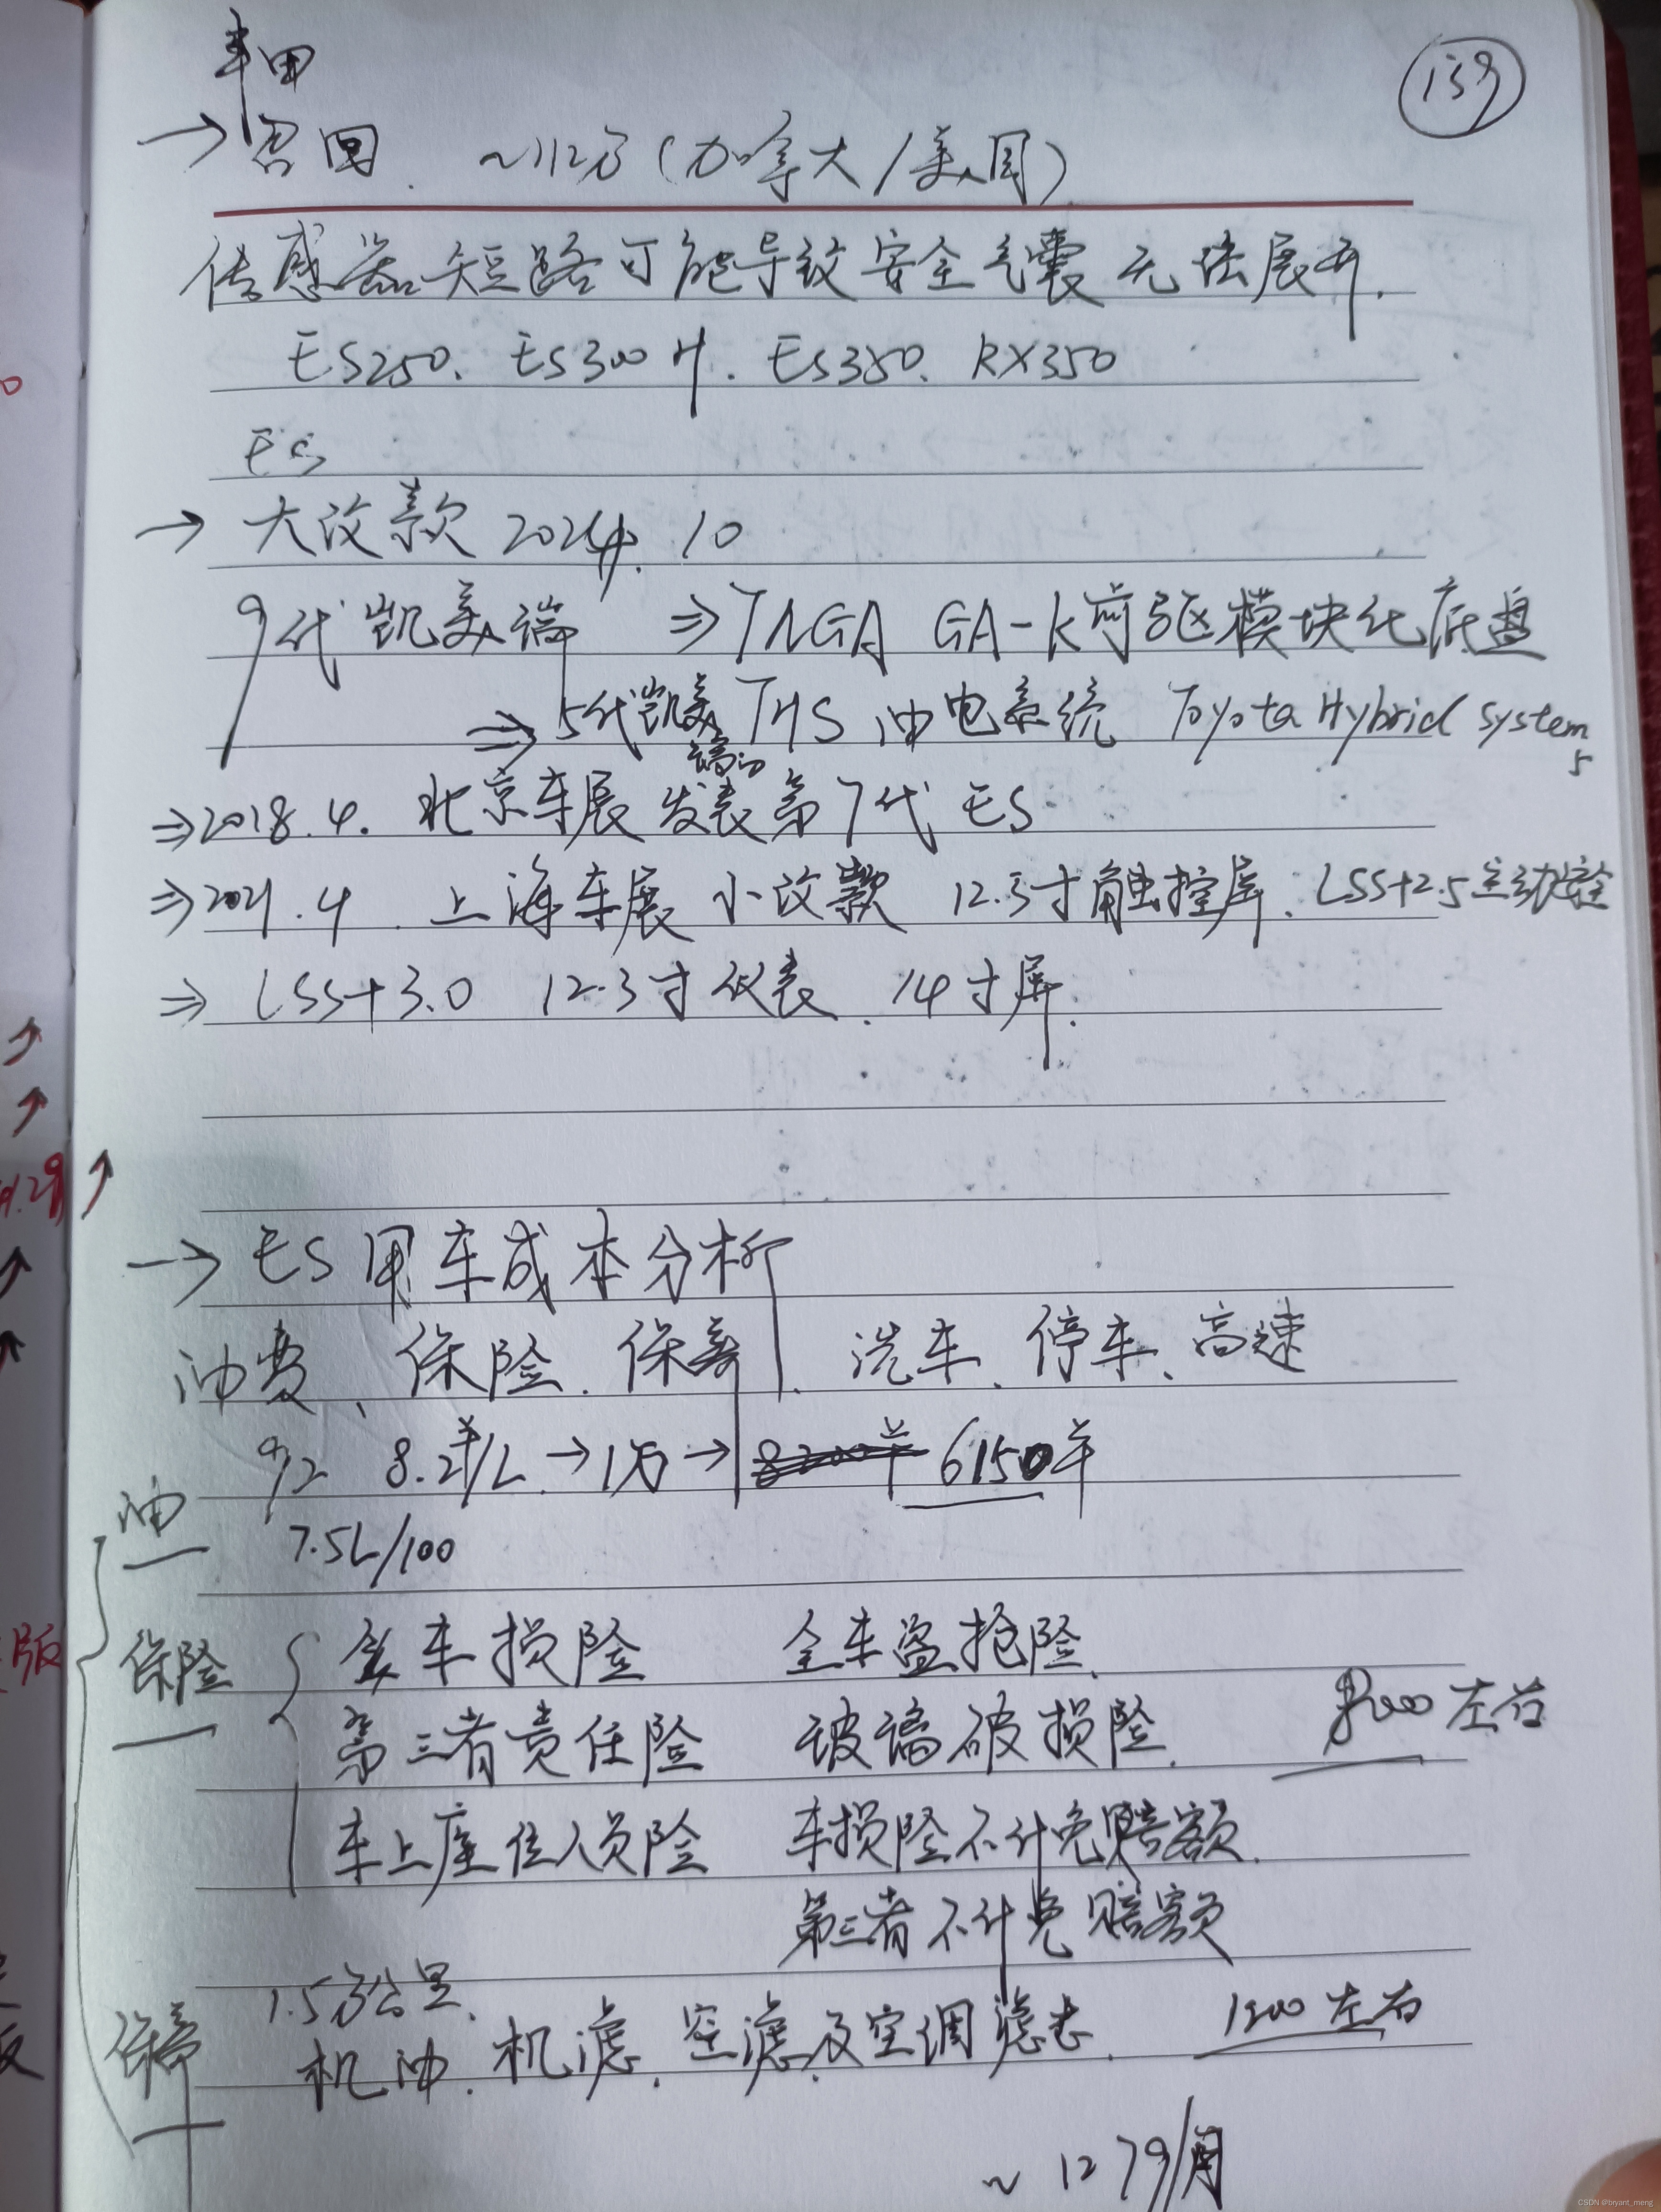 159
丰田
→ 召回. ~112万(加拿大/美国)
传感器短路可能导致安全气囊无法展开.
ES250. ES300H. ES350. RX350
ES
→ 大改款 2024. 10
9代凯美瑞 ⇒ TNGA GA-K前驱模块化底盘
⇒ 5代凯美瑞的 THS 油电系统 Toyota Hybrid System 5
⇒ 2018.4. 北京车展发表第7代 ES
⇒ 2021.4. 上海车展 小改款 12.3寸触控屏. LSS+2.5主动安全
⇒ LSS+3.0 12.3寸仪表. 14寸屏.
→ ES用车成本分析
油费、保险、保养、洗车、停车、高速
油 92 8.2元/L → 1万 → 6150年
7.5L/100
保险 车损险 全车盗抢险.
第三者责任险 玻璃破损险. 左右
车上座位人员险 车损险不计免赔额.
第三者不计免赔额
保养 1.5万公里.
机油. 机滤. 空滤及空调滤芯. 左右
~ 1279/月
版
CSDN @bryant_meng